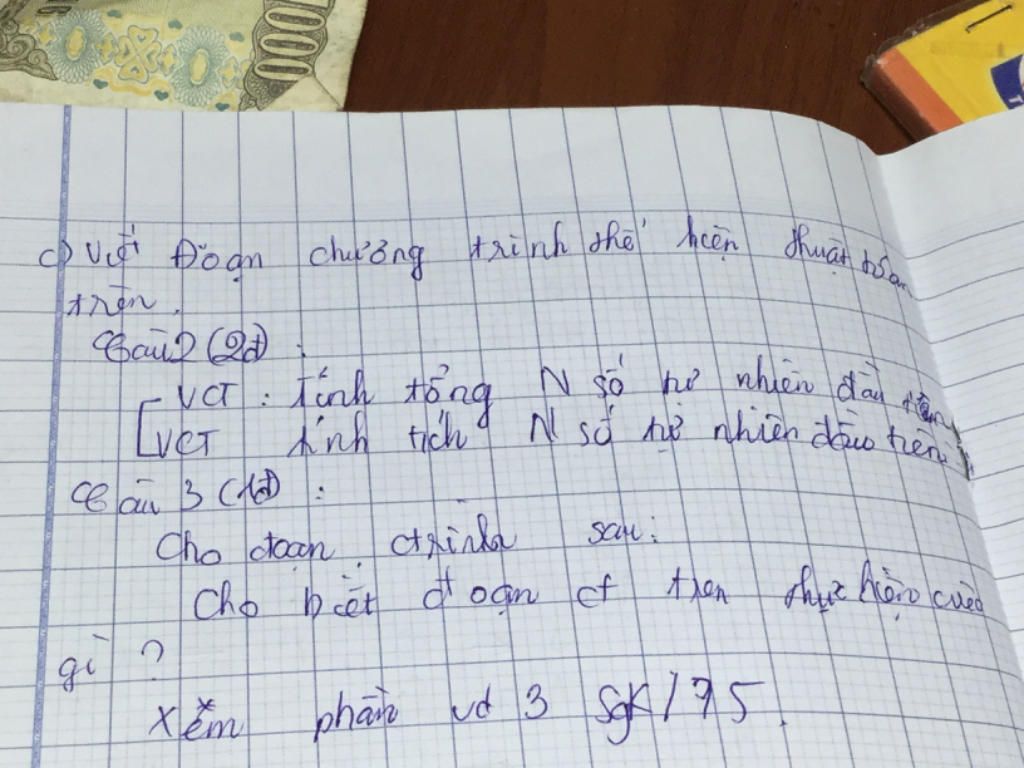 10000
c) Viết Đoạn chương trình thể hiện thuật toán
trên.
Câu 2 (2đ) :
VCT : tính tổng N số tự nhiên đầu tiên
VCT tính tích N số tự nhiên đầu tiên
Câu 3 (1đ) :
Cho đoạn ctrình sau:
Cho biết đoạn ct trên thực hiện việc
gì ?
Xem phần vd 3 SGK/75.